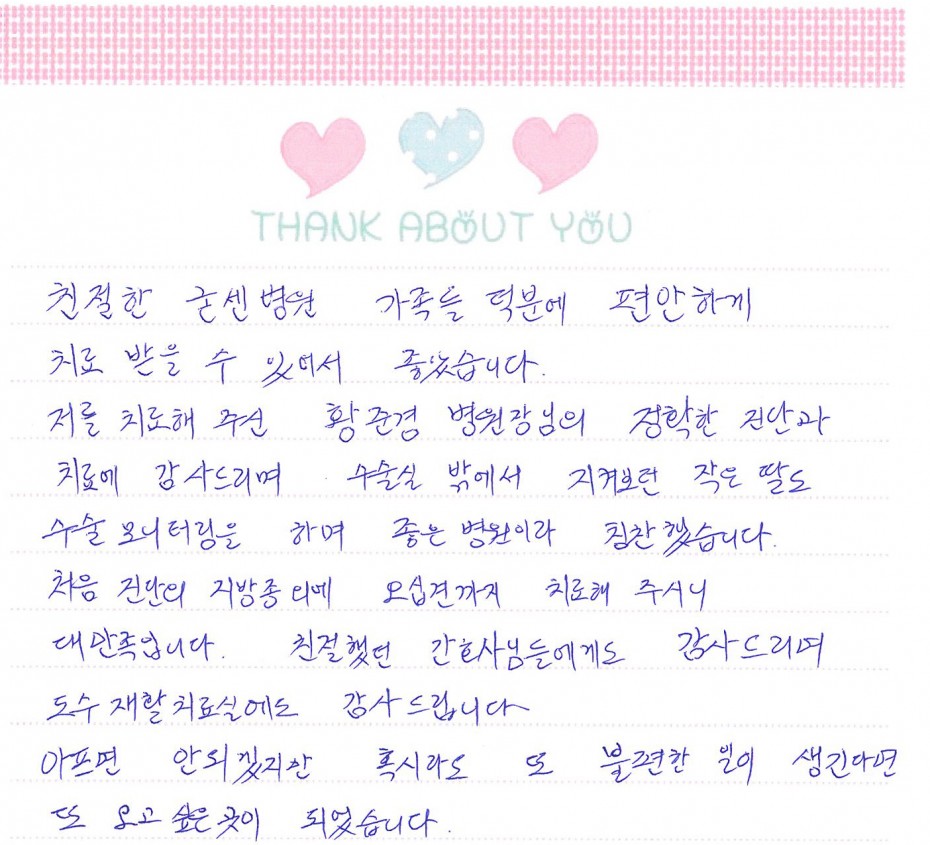 THANK ABOUT YOU
친절한 굳센병원 가족들 덕분에 편안하게
치료 받을 수 있어서 좋았습니다.
저를 치료해 주신 황준경 병원장님의 정확한 진단과
치료에 감사드리며 수술실 밖에서 지켜보던 작은 딸도
수술 모니터링을 하며 좋은 병원이라 칭찬했습니다.
처음 진단의 지방종외에 오십견까지 치료해 주시니
대만족입니다. 친절했던 간호사님들에게도 감사드리며
도수 재활치료실에도 감사드립니다
아프면 안되겠지만 혹시라도 또 불편한 일이 생긴다면
또 오고 싶은 곳이 되었습니다.